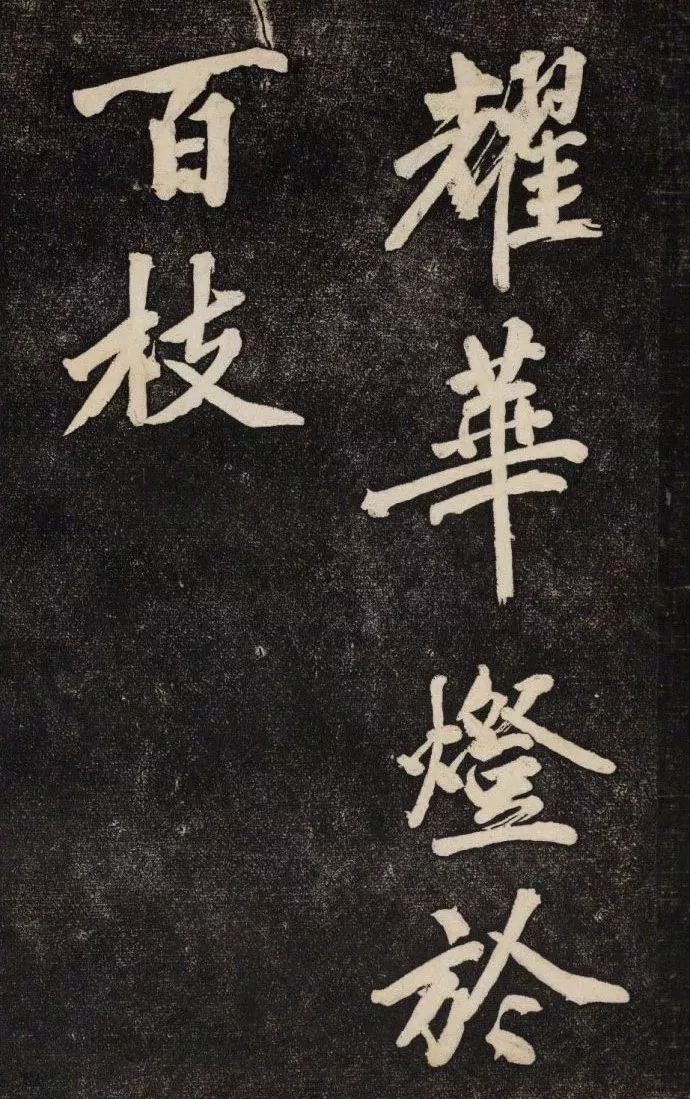 耀華燈於
百枝